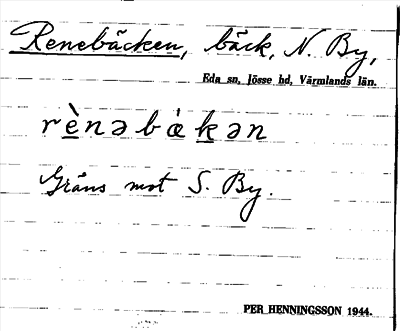 Renebäcken, bäck, N. By,
Eda sn, Jösse hd, Värmlands län.
rènəbákən
Gräns mot S. By.
PER HENNINGSSON 1944.